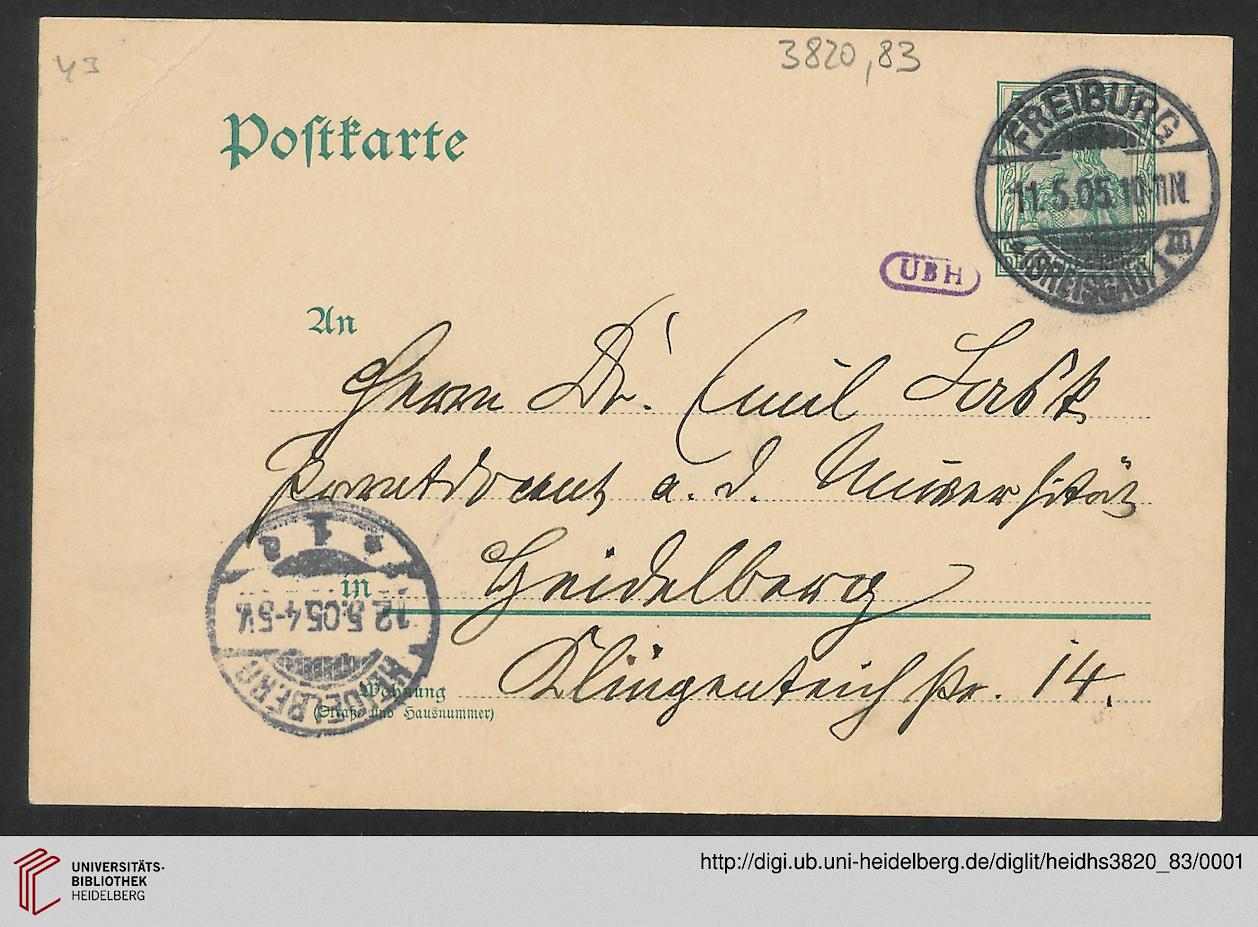 43
3820,83
Postkarte
FREIBURG
11.5.05.10-11N.
(BREISGAU) 1 m
UBH
An
Herrn Dr. Emil Lask
Privatdocent a. d. Universität
in Heidelberg
Wohnung Klingenteichstr. 14.
(Straße und Hausnummer)
HEIDELBERG
12.5.05.4-5V.
* 1 a
UNIVERSITÄTS-
BIBLIOTHEK
HEIDELBERG
http://digi.ub.uni-heidelberg.de/diglit/heidhs3820_83/0001